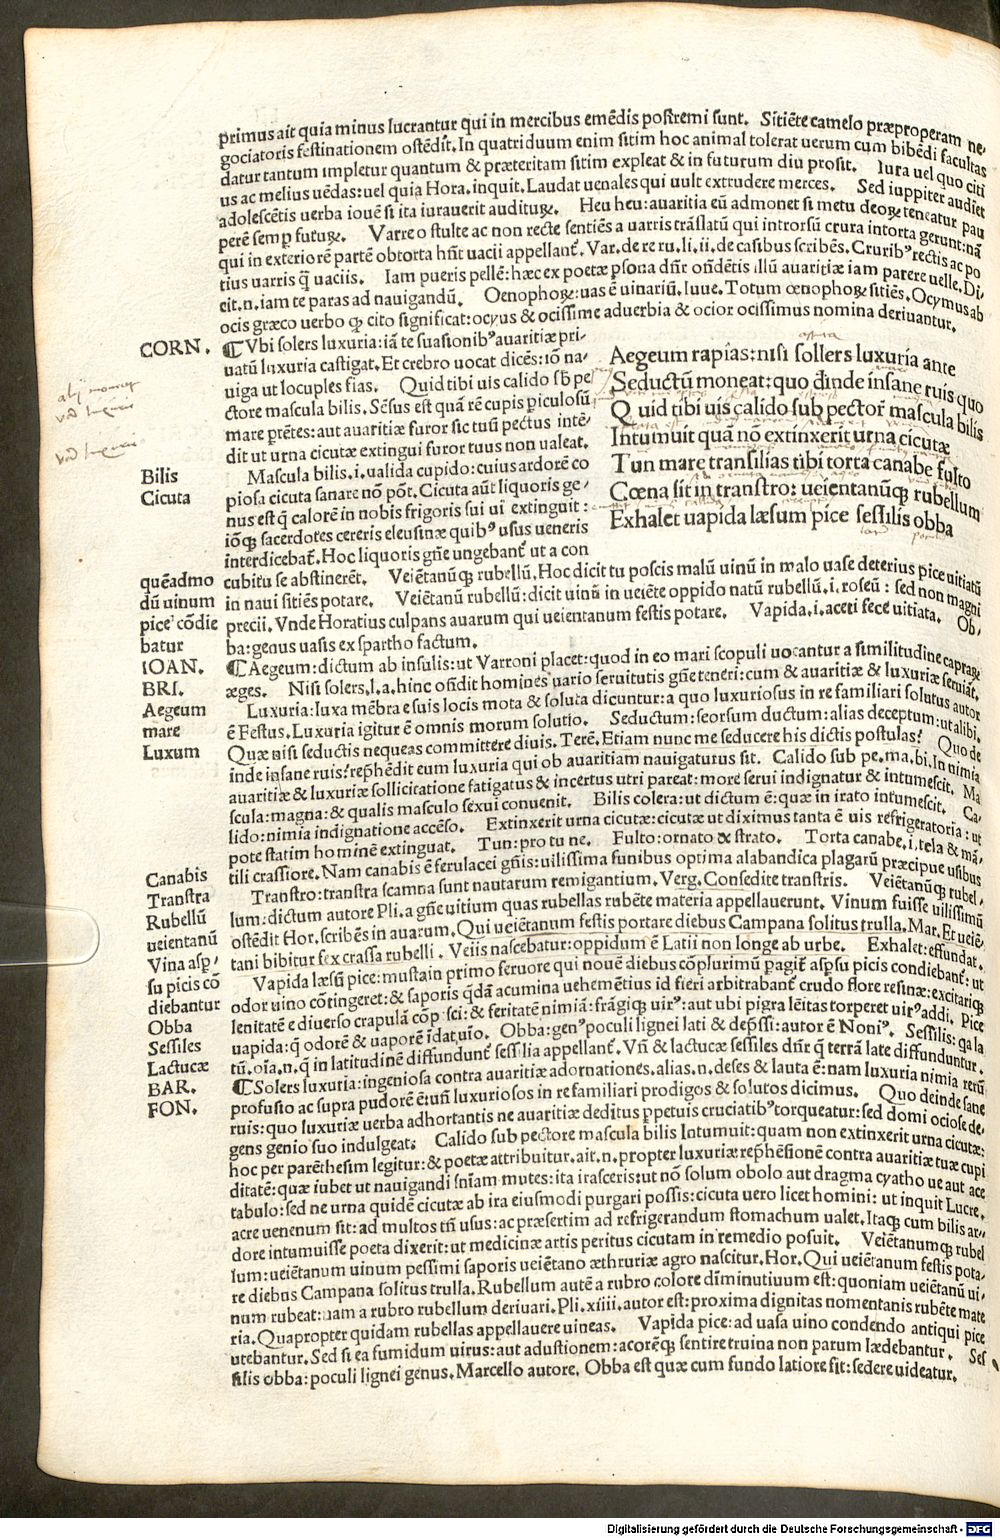 primus ait quia minus lucrantur qui in mercibus emẽdis postremi sunt. Sitiẽte camelo præproperam ne
gociatoris festinationem ostẽdit. In quatriduum enim sitim hoc animal tolerat uerum cum bibẽdi facultas
datur tantum impletur quantum & præteritam sitim expleat & in futurum diu prosit. Iura uel quo citi
us ac melius uẽdas: uel quia Hora. inquit. Laudat uenales qui uult extrudere merces. Sed iuppiter audiet
adolescẽtis uerba iouẽ si ita iurauerit auditurꝫ. Heu heu: auaritia eũ admonet si metu deorꝫ teneatur pau
perẽ semꝑ futurꝫ. Varre o stulte ac non recte sentiẽs a uarris trãslatũ qui introrsũ crura intorta gerunt: nã
qui in exteriorẽ partẽ obtorta hñt uacii appellant̃. Var. de re ru. li. ii. de casibus scribẽs. Cruribꝰ rectis ac po
tius uarris q̃ uaciis. Iam pueris pellẽ: hæc ex poetæ ꝑsona dñr oñdẽtis illũ auaritiæ iam parere uelle. Di/
cit. n. iam te paras ad nauigandũ. Oenophorꝫ: uas ẽ uinariũ. Iuue. Totum œnophorꝫ sitiẽs. Ocymus ab
ocis græco uerbo qꝫ cito significat: ocyus & ocissime aduerbia & ocior ocissimus nomina deriuantur.
CORN. ¶ Vbi solers luxuria: iã te suasionibꝰ auaritiæ pri/
uatũ luxuria castigat. Et crebro uocat dicẽs: iõ na/
uiga ut locuples fias. Quid tibi uis calido sb̃ pe
ctore mascula bilis. Sẽsus est quã rẽ cupis ꝑiculosũ
mare p̃tẽtes: aut auaritiæ furor sic tuũ pectus intẽ/
dit ut urna cicutæ extingui furor tuus non ualeat.
Bilis Mascula bilis. i. ualida cupido: cuius ardorẽ co
Cicuta piosa cicuta sanare nõ põt. Cicuta aũt liquoris ge/
nus est q̃ calorẽ in nobis frigoris sui ui extinguit:
iõqꝫ sacerdotes cereris eleusinæ quibꝰ usus ueneris
interdicebat̃. Hoc liquoris gñe ungebant̃ ut a con
Aegeum rapias: nisi sollers luxuria ante
Seductũ moneat: quo đinde insane ruis quo
Quid tibi uis calido sub pector̃ mascula bilis
Intumuit quã nõ extinxerit urna cicutæ
Tun mare transilias tibi torta canabe fulto
Cœna sit in transtro: ueientanũqꝫ rubellum
Exhalet uapida læsum pice sessilis obba
quẽadmo cubitu se abstinerẽt. Veiẽtanũqꝫ rubellũ. Hoc dicit tu poscis malũ uinũ in malo uase deterius pice uitiatũ
dũ uinum in naui sitiẽs potare. Veiẽtanũ rubellũ: dicit uinũ in ueiẽte oppido natũ rubellũ. i. roseũ: sed non magni
pice cõdie precii. Vnde Horatius culpans auarum qui ueientanum festis potare. Vapida. i. aceti fece uitiata. Ob/
batur ba: genus uasis ex spartho factum.
IOAN. ¶ Aegeum: dictum ab insulis: ut Varroni placet: quod in eo mari scopuli uocantur a similitudine caprarꝫ
BRI. æges. Nisi solers. l. a. hinc oñdit homines uario seruitutis gñe teneri: cum & auaritiæ & luxuriæ seruiãt.
Aegeum Luxuria: luxa mẽbra e suis locis mota & soluta dicuntur: a quo luxuriosus in re familiari solutus autor
mare ẽ Festus. Luxuria igitur ẽ omnis morum solutio. Seductum: seorsum ductum: alias deceptum: ut alibi.
Luxum Quæ nisi seductis nequeas committere diuis. Terẽ. Etiam nunc me seducere his dictis postulas? Quo de
inde insane ruis? rep̃hẽdit eum luxuria qui ob auaritiam nauigaturus sit. Calido sub pe. ma. bi. In nimia
auaritiæ & luxuriæ sollicitatione fatigatus & incertus utri pareat: more serui indignatur & intumescit. Ma
scula: magna: & qualis masculo sexui conuenit. Bilis colera: ut dictum ẽ: quæ in irato intumescit. Ca/
lido: nimia indignatione accẽso. Extinxerit urna cicutæ: cicutæ ut diximus tanta ẽ uis refrigeratoria: ut
pote statim hominẽ extinguat. Tun: pro tu ne. Fulto: ornato & strato. Torta canabe. i. tela & mã/
tili crassiore. Nam canabis ẽ ferulacei gñis: uilissima funibus optima alabandica plagarũ præcipue usibus
Canabis
Transtra Transtro: transtra scamna sunt nautarum remigantium. Verg. Consedite transtris. Veiẽtanũqꝫ rubel/
Rubellũ lum: dictum autore Pli. a gñe uitium quas rubellas rubẽte materia appellauerunt. Vinum fuisse uilissimũ
ueientanũ ostẽdit Hor. scribẽs in auarum. Qui ueiẽtanum festis portare diebus Campana solitus trulla. Mar. Et ueiẽ/
Vina asp/ tani bibitur fex crassa rubelli. Veiis nascebatur: oppidum ẽ Latii non longe ab urbe. Exhalet: effundat.
su picis cõ Vapida læsũ pice: mustain primo feruore qui nouẽ diebus cõplurimũ ꝑagit̃ aspsu picis condiebant̃: ut
diebantur odor uino cõtingeret: & saporis q̃dã acumina uehemẽtius id fieri arbitrabant̃ crudo flore resinæ: excitariqꝫ
Obba lenitatẽ e diuerso crapulã cõpsci: & feritatẽ nimiã: frãgiqꝫ uirꝰ: aut ubi pigra lẽitas torperet uirꝰ addi. Pice
Sessiles uapida: q̃ odorẽ & uaporẽ ĩdat uio. Obba: genꝰ poculi lignei lati & dep̃ssi: autor ẽ Noniꝰ. Sessilis: ga la
Lactucæ tũ. oĩa. n. q̃ in latitudinẽ diffundunt̃ sessilia appellant̃. Vñ & lactucæ sessiles dñr q̃ terrã late diffunduntur.
BAR. ¶ Solers luxuria: ingeniosa contra auaritiæ adornationes. alias. n. deses & lauta ẽ: nam luxuria nimia rerũ
FON. profusio ac supra pudorẽ ẽ: uñ luxuriosos in re familiari prodigos & solutos dicimus. Quo deinde sane
ruis: quo luxuriæ uerba adhortantis ne auaritiæ deditus ꝑpetuis cruciatibꝰ torqueatur: sed domi ociose de/
gens genio suo indulgeat: Calido sub pectore mascula bilis Intumuit: quam non extinxerit urna cicutæ:
hoc per parẽthesim legitur: & poetæ attribuitur. ait. n. propter luxuriæ rep̃hẽsionẽ contra auaritiæ tuæ cupi
ditatẽ: quæ iubet ut nauigandi sniam mutes: ita irasceris: ut nõ solum obolo aut dragma cyatho ue aut ace
tabulo: sed ne urna quidẽ cicutæ ab ira eiusmodi purgari possis: cicuta uero licet homini: ut inquit Lucre.
acre uenenum sit: ad multos tñ usus: ac præsertim ad refrigerandum stomachum ualet. Itaqꝫ cum bilis ar//
dore intumuisse poeta dixerit: ut medicinæ artis peritus cicutam in remedio posuit. Veiẽtanumqꝫ rubel
lum: ueiẽtanum uinum pessimi saporis ueiẽtano æthruriæ agro nascitur. Hor. Qui ueiẽtanum festis pota/
re diebus Campana solitus trulla. Rubellum autẽ a rubro colore dĩminutiuum est: quoniam ueiẽtanũ ui/
num rubeat: nam a rubro rubellum deriuari. Pli. xiiii. autor est: proxima dignitas nomentanis rubẽte mate
ria. Quapropter quidam rubellas appellauere uineas. Vapida pice: ad uasa uino condendo antiqui pice
utebantur. Sed si ea fumidum uirus: aut adustionem: acorẽqꝫ sentire truina non parum lædebantur. Ses
silis obba: poculi lignei genus. Marcello autore. Obba est quæ cum fundo latiore sit: sedere uideatur.
Digitalisierung gefördert durch die Deutsche Forschungsgemeinschaft - DFG